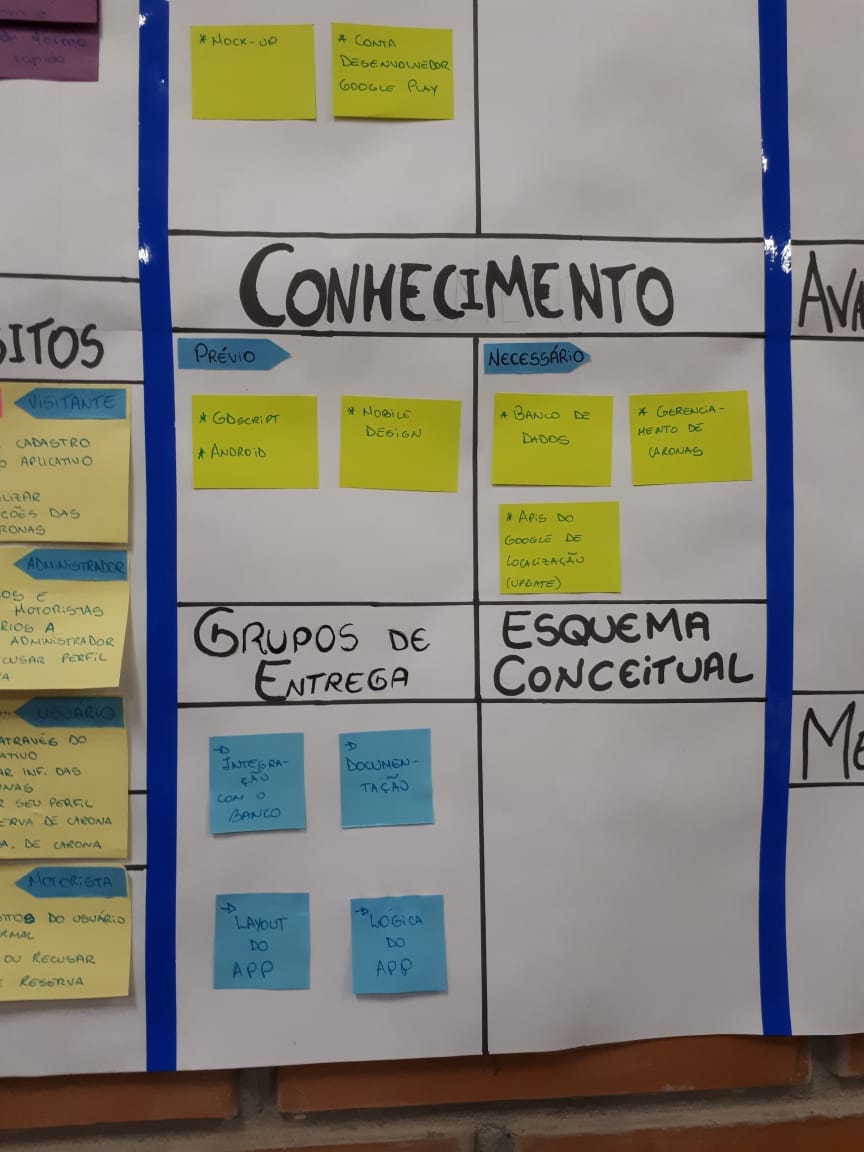 de forma
rápida
SITOS
VISITANTE
CADASTRO
O APLICATIVO
LIZAR
ÇÕES DAS
RONAS
ADMINISTRADOR
OS E
MOTORISTAS
RIOS A
ADMINISTRADOR
CUSAR PERFIL
A
USUÁRIO
ATRAVÉS DO
ATIVO
AR INF. DAS
NAS
R SEU PERFIL
ERVA DE CARONA
A. DE CARONA
MOTORISTA
ITOS DO USUÁRIO
RMAL
OU RECUSAR
E RESERVA
* MOCK-UP
* CONTA
DESENVOLVEDOR
GOOGLE PLAY
CONHECIMENTO
PRÉVIO
* GDSCRIPT
* ANDROID
* MOBILE
DESIGN
NECESSÁRIO
* BANCO DE
DADOS
* GERENCIA-
MENTO DE
CARONAS
* APIS DO
GOOGLE DE
LOCALIZAÇÃO
(UPDATE)
GRUPOS DE
ENTREGA
INTEGRA-
ÇÃO
COM O
BANCO
DOCUMEN-
TAÇÃO
LAYOUT
DO
APP
LÓGICA
DO
APP
ESQUEMA
CONCEITUAL
AVA
ME